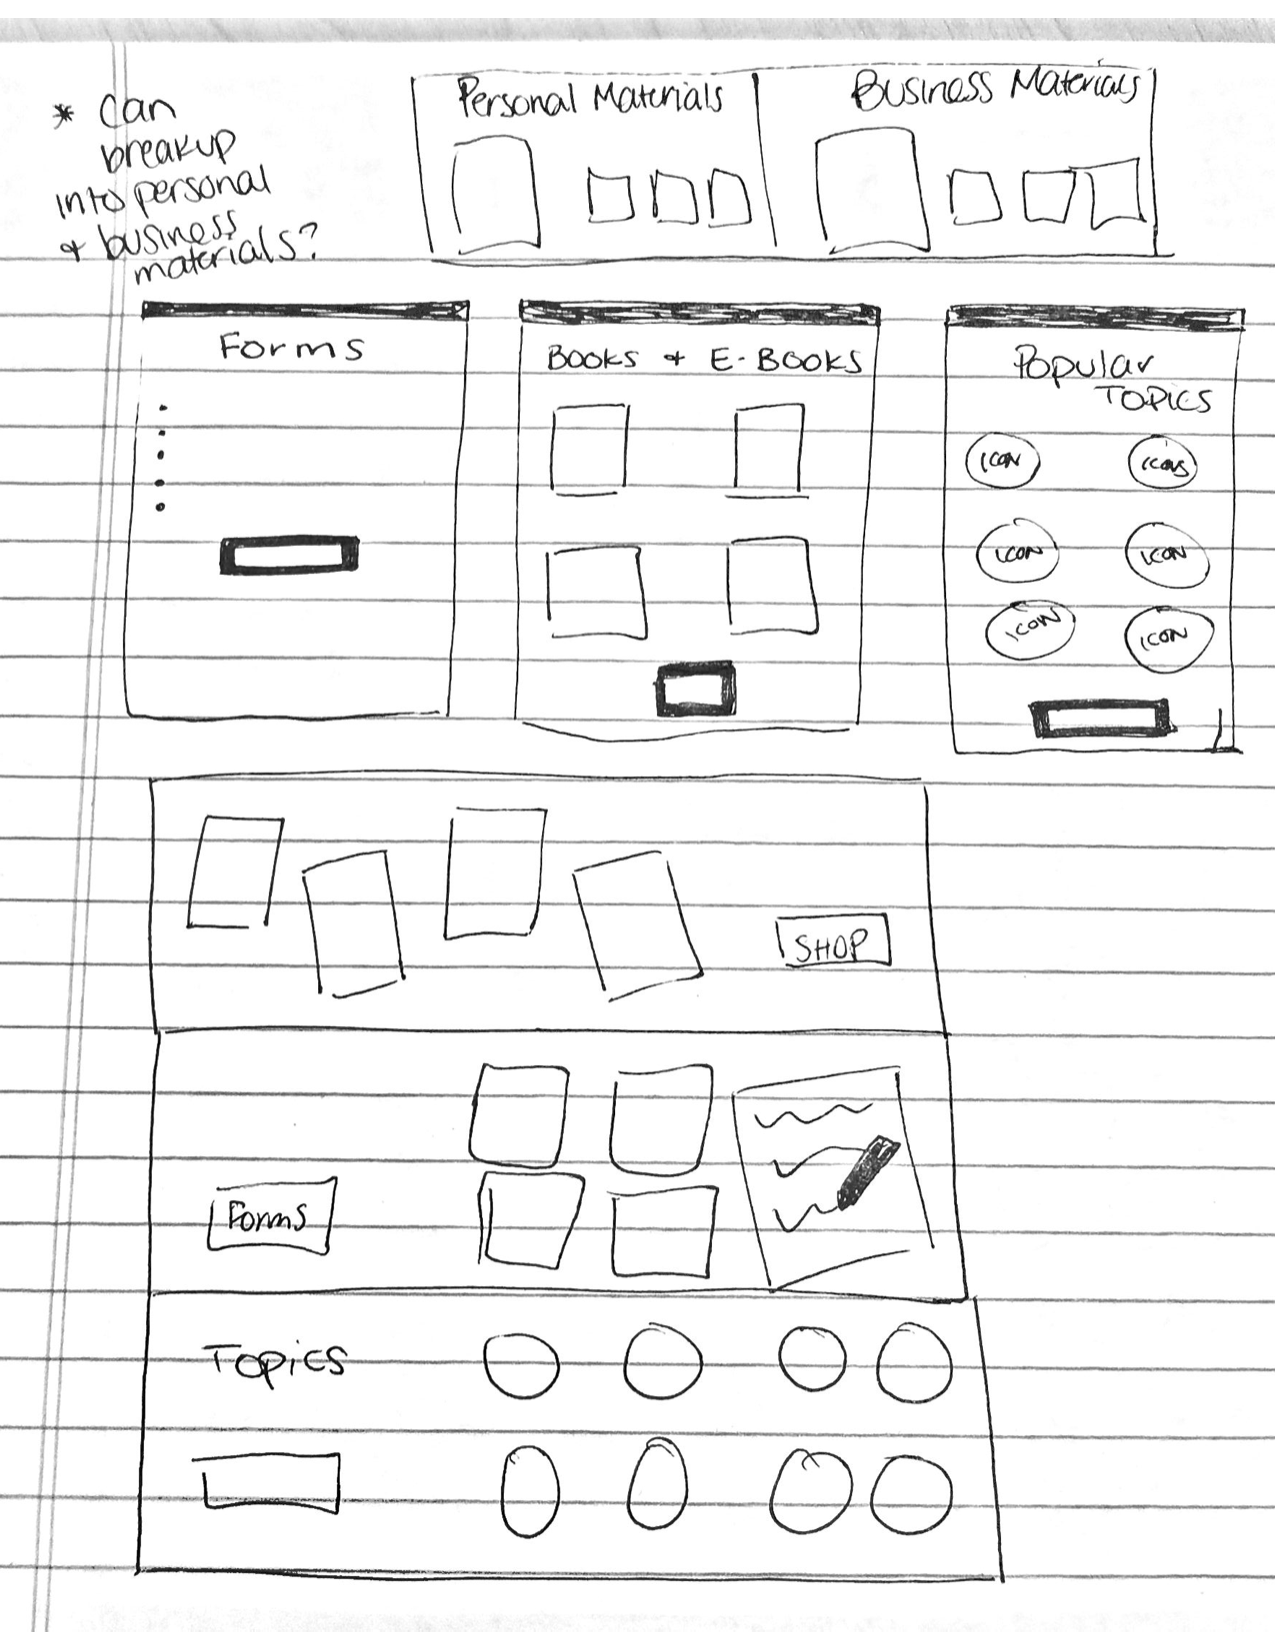 * Can
breakup
into personal
& business
materials?
Personal Materials
Business Materials
Forms
BOOKS & E-BOOKS
Popular
TOPICS
ICON
ICONS
ICON
ICON
ICON
ICON
SHOP
Forms
Topics